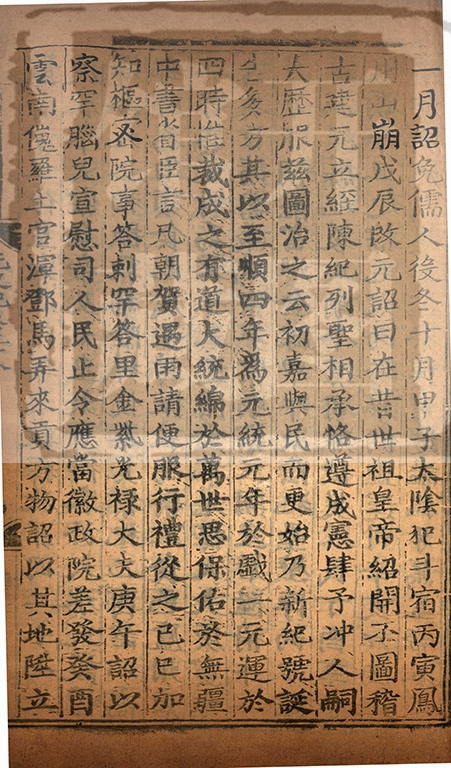 一月詔免儒人後冬十月甲子太陰犯斗宿丙寅鳳
州山崩戊辰改元詔曰在昔世祖皇帝紹開丕圖稽
古建元立經陳紀列聖相承恪遵成憲肆予冲人嗣
大歷服茲圖治之云初嘉與民而更始乃新紀號誕
告多方其以至順四年爲元統元年於戲一元運於
四時惟裁成之有道大統綿於萬世思保佑於無疆
中書省臣言凡朝賀遇雨請便服行禮從之己巳加
知樞密院事答剌罕答里金紫光禄大夫庚午詔以
察罕腦兒宣慰司人民止令應當徽政院差發癸酉
雲南儍羅土官渾鄧馬弄來貢方物詔以其地陞立